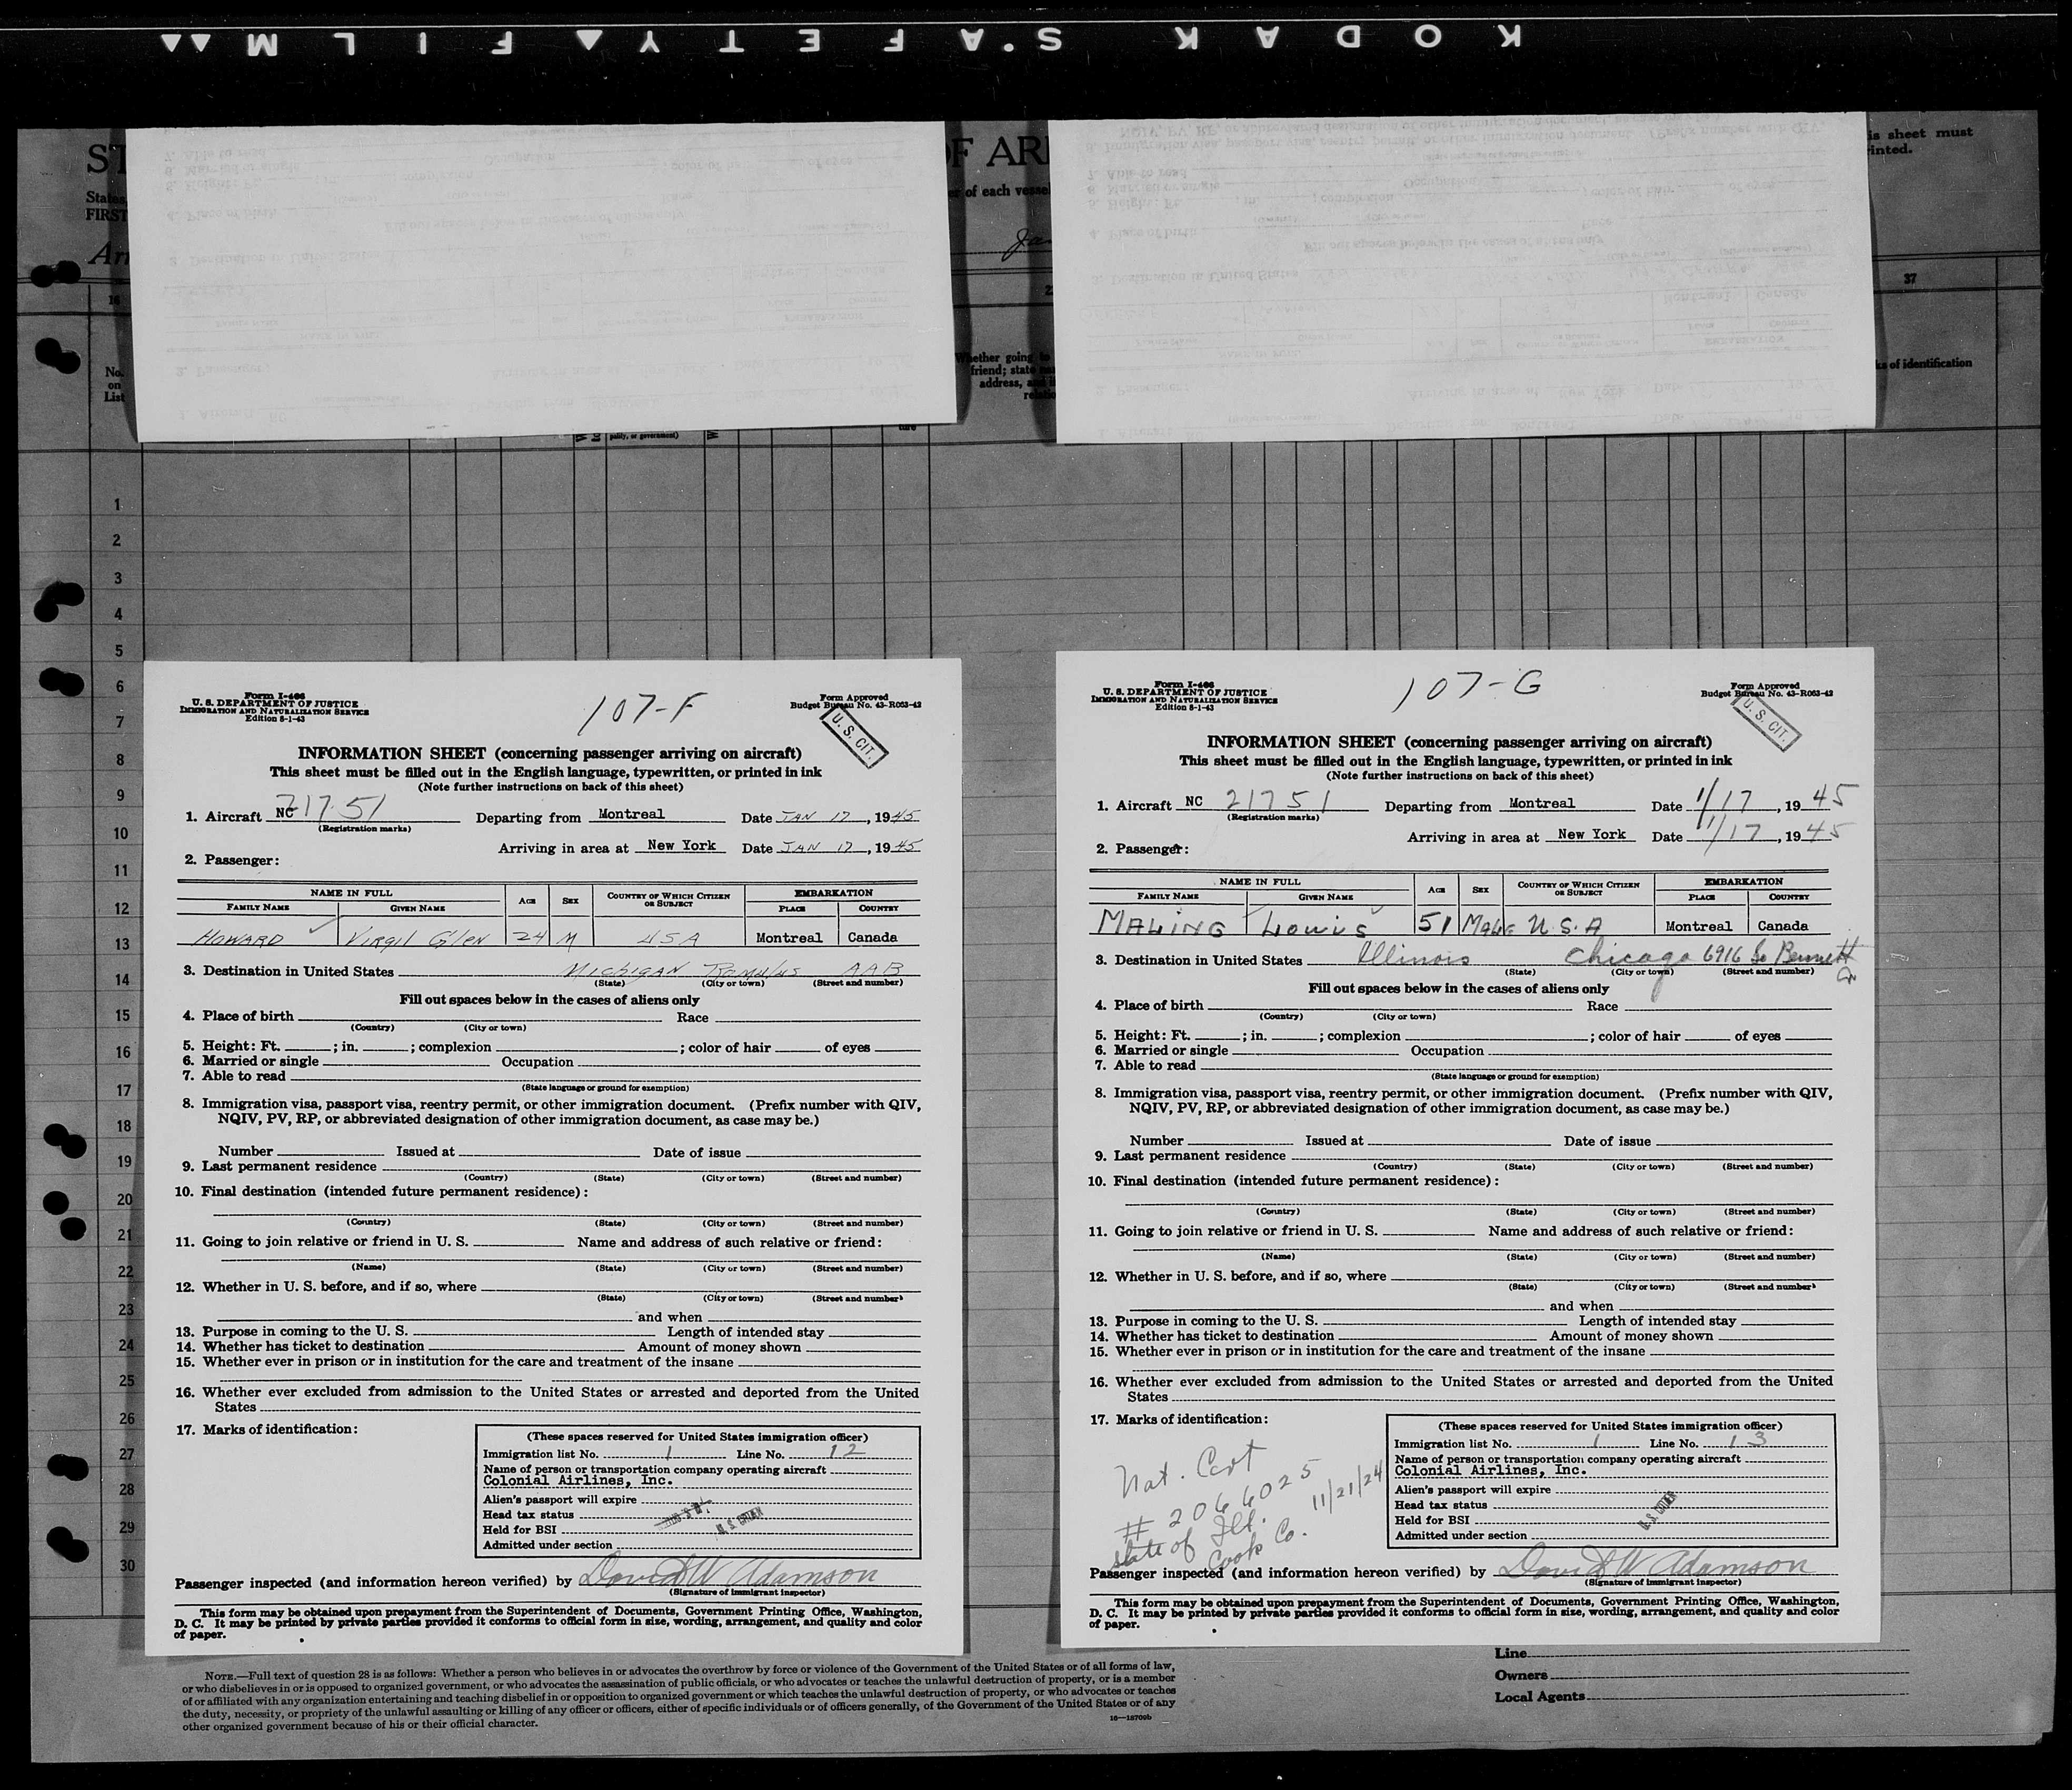 KODAK SAFETY FILM
ST
F ARI
is sheet must
rinted.
States
er of each vessel
FIRST
Arr
Jan
16
2
37
Whether going to
friend; state
address, and
No.
on
List
ks of identification
pality, or government)
1
2
3
4
5
6
7
8
9
10
11
12
13
14
15
16
17
18
19
20
21
22
23
24
25
26
27
28
29
30
Form I-466
U. S. DEPARTMENT OF JUSTICE
IMMIGRATION AND NATURALIZATION SERVICE
Edition 8-1-43
107-F
Form Approved
Budget Bureau No. 43-R063-42
U. S. CIT.
INFORMATION SHEET (concerning passenger arriving on aircraft)
This sheet must be filled out in the English language, typewritten, or printed in ink
(Note further instructions on back of this sheet)
1. Aircraft NC 21751 Departing from Montreal Date JAN 17, 1945
(Registration marks)
Arriving in area at New York Date JAN 17, 1945
2. Passenger:
NAME IN FULL AGE SEX COUNTRY OF WHICH CITIZEN OR SUBJECT EMBARKATION
FAMILY NAME GIVEN NAME PLACE COUNTRY
HOWARD Virgil Glen 24 M USA Montreal Canada
3. Destination in United States Michigan Romulus AAB
(State) (City or town) (Street and number)
Fill out spaces below in the cases of aliens only
4. Place of birth Race
(Country) (City or town)
5. Height: Ft. ; in. ; complexion ; color of hair of eyes
6. Married or single Occupation
7. Able to read
(State language or ground for exemption)
8. Immigration visa, passport visa, reentry permit, or other immigration document. (Prefix number with QIV,
NQIV, PV, RP, or abbreviated designation of other immigration document, as case may be.)
Number Issued at Date of issue
9. Last permanent residence
(Country) (State) (City or town) (Street and number)
10. Final destination (intended future permanent residence):
(Country) (State) (City or town) (Street and number)
11. Going to join relative or friend in U. S. Name and address of such relative or friend:
(Name) (State) (City or town) (Street and number)
12. Whether in U. S. before, and if so, where
(State) (City or town) (Street and number)
and when
13. Purpose in coming to the U. S. Length of intended stay
14. Whether has ticket to destination Amount of money shown
15. Whether ever in prison or in institution for the care and treatment of the insane
16. Whether ever excluded from admission to the United States or arrested and deported from the United
States
17. Marks of identification:
(These spaces reserved for United States immigration officer)
Immigration list No. 1 Line No. 12
Name of person or transportation company operating aircraft
Colonial Airlines, Inc.
Alien's passport will expire
Head tax status
Held for BSI U. S. CITIZEN
Admitted under section
Passenger inspected (and information hereon verified) by David W Adamson
(Signature of immigrant inspector)
This form may be obtained upon prepayment from the Superintendent of Documents, Government Printing Office, Washington,
D. C. It may be printed by private parties provided it conforms to official form in size, wording, arrangement, and quality and color
of paper.
Form I-466
U. S. DEPARTMENT OF JUSTICE
IMMIGRATION AND NATURALIZATION SERVICE
Edition 8-1-43
107-G
Form Approved
Budget Bureau No. 43-R063-42
U. S. CIT.
INFORMATION SHEET (concerning passenger arriving on aircraft)
This sheet must be filled out in the English language, typewritten, or printed in ink
(Note further instructions on back of this sheet)
1. Aircraft NC 21751 Departing from Montreal Date 1/17, 1945
(Registration marks)
Arriving in area at New York Date 1/17, 1945
2. Passenger:
NAME IN FULL AGE SEX COUNTRY OF WHICH CITIZEN OR SUBJECT EMBARKATION
FAMILY NAME GIVEN NAME PLACE COUNTRY
MALING Louis 51 Male U.S.A Montreal Canada
3. Destination in United States Illinois Chicago 6916 So Bennett
(State) (City or town) (Street and number)
Fill out spaces below in the cases of aliens only
4. Place of birth Race
(Country) (City or town)
5. Height: Ft. ; in. ; complexion ; color of hair of eyes
6. Married or single Occupation
7. Able to read
(State language or ground for exemption)
8. Immigration visa, passport visa, reentry permit, or other immigration document. (Prefix number with QIV,
NQIV, PV, RP, or abbreviated designation of other immigration document, as case may be.)
Number Issued at Date of issue
9. Last permanent residence
(Country) (State) (City or town) (Street and number)
10. Final destination (intended future permanent residence):
(Country) (State) (City or town) (Street and number)
11. Going to join relative or friend in U. S. Name and address of such relative or friend:
(Name) (State) (City or town) (Street and number)
12. Whether in U. S. before, and if so, where
(State) (City or town) (Street and number)
and when
13. Purpose in coming to the U. S. Length of intended stay
14. Whether has ticket to destination Amount of money shown
15. Whether ever in prison or in institution for the care and treatment of the insane
16. Whether ever excluded from admission to the United States or arrested and deported from the United
States
17. Marks of identification:
Nat. Cert
# 2066025 11/21/24
State of Ill.
Cook Co.
(These spaces reserved for United States immigration officer)
Immigration list No. 1 Line No. 13
Name of person or transportation company operating aircraft
Colonial Airlines, Inc.
Alien's passport will expire
Head tax status
Held for BSI U. S. CITIZEN
Admitted under section
Passenger inspected (and information hereon verified) by David W Adamson
(Signature of immigrant inspector)
This form may be obtained upon prepayment from the Superintendent of Documents, Government Printing Office, Washington,
D. C. It may be printed by private parties provided it conforms to official form in size, wording, arrangement, and quality and color
of paper.
NOTE.—Full text of question 28 is as follows: Whether a person who believes in or advocates the overthrow by force or violence of the Government of the United States or of all forms of law,
or who disbelieves in or is opposed to organized government, or who advocates the assassination of public officials, or who advocates or teaches the unlawful destruction of property, or is a member
of or affiliated with any organization entertaining and teaching disbelief in or opposition to organized government or which teaches the unlawful destruction of property, or who advocates or teaches
the duty, necessity, or propriety of the unlawful assaulting or killing of any officer or officers, either of specific individuals or of officers generally, of the Government of the United States or of any
other organized government because of his or their official character.
16—18709b
Line
Owners
Local Agents